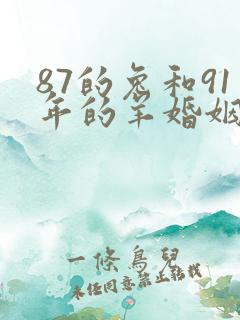 87的兔和91
年的羊婚姻
一條鳥兒
未经同意禁止转载